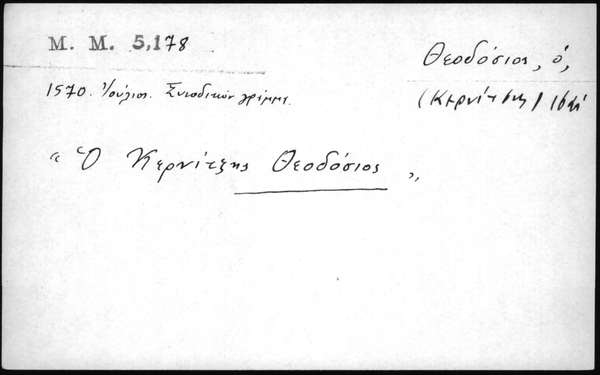 M. M. 5,178
Θεοδόσιος, ὁ,
1570. Ἰούλιος. Συνοδικόν γράμμα.
(Κερνίτσης)
« Ὁ Κερνίτζης Θεοδόσιος »